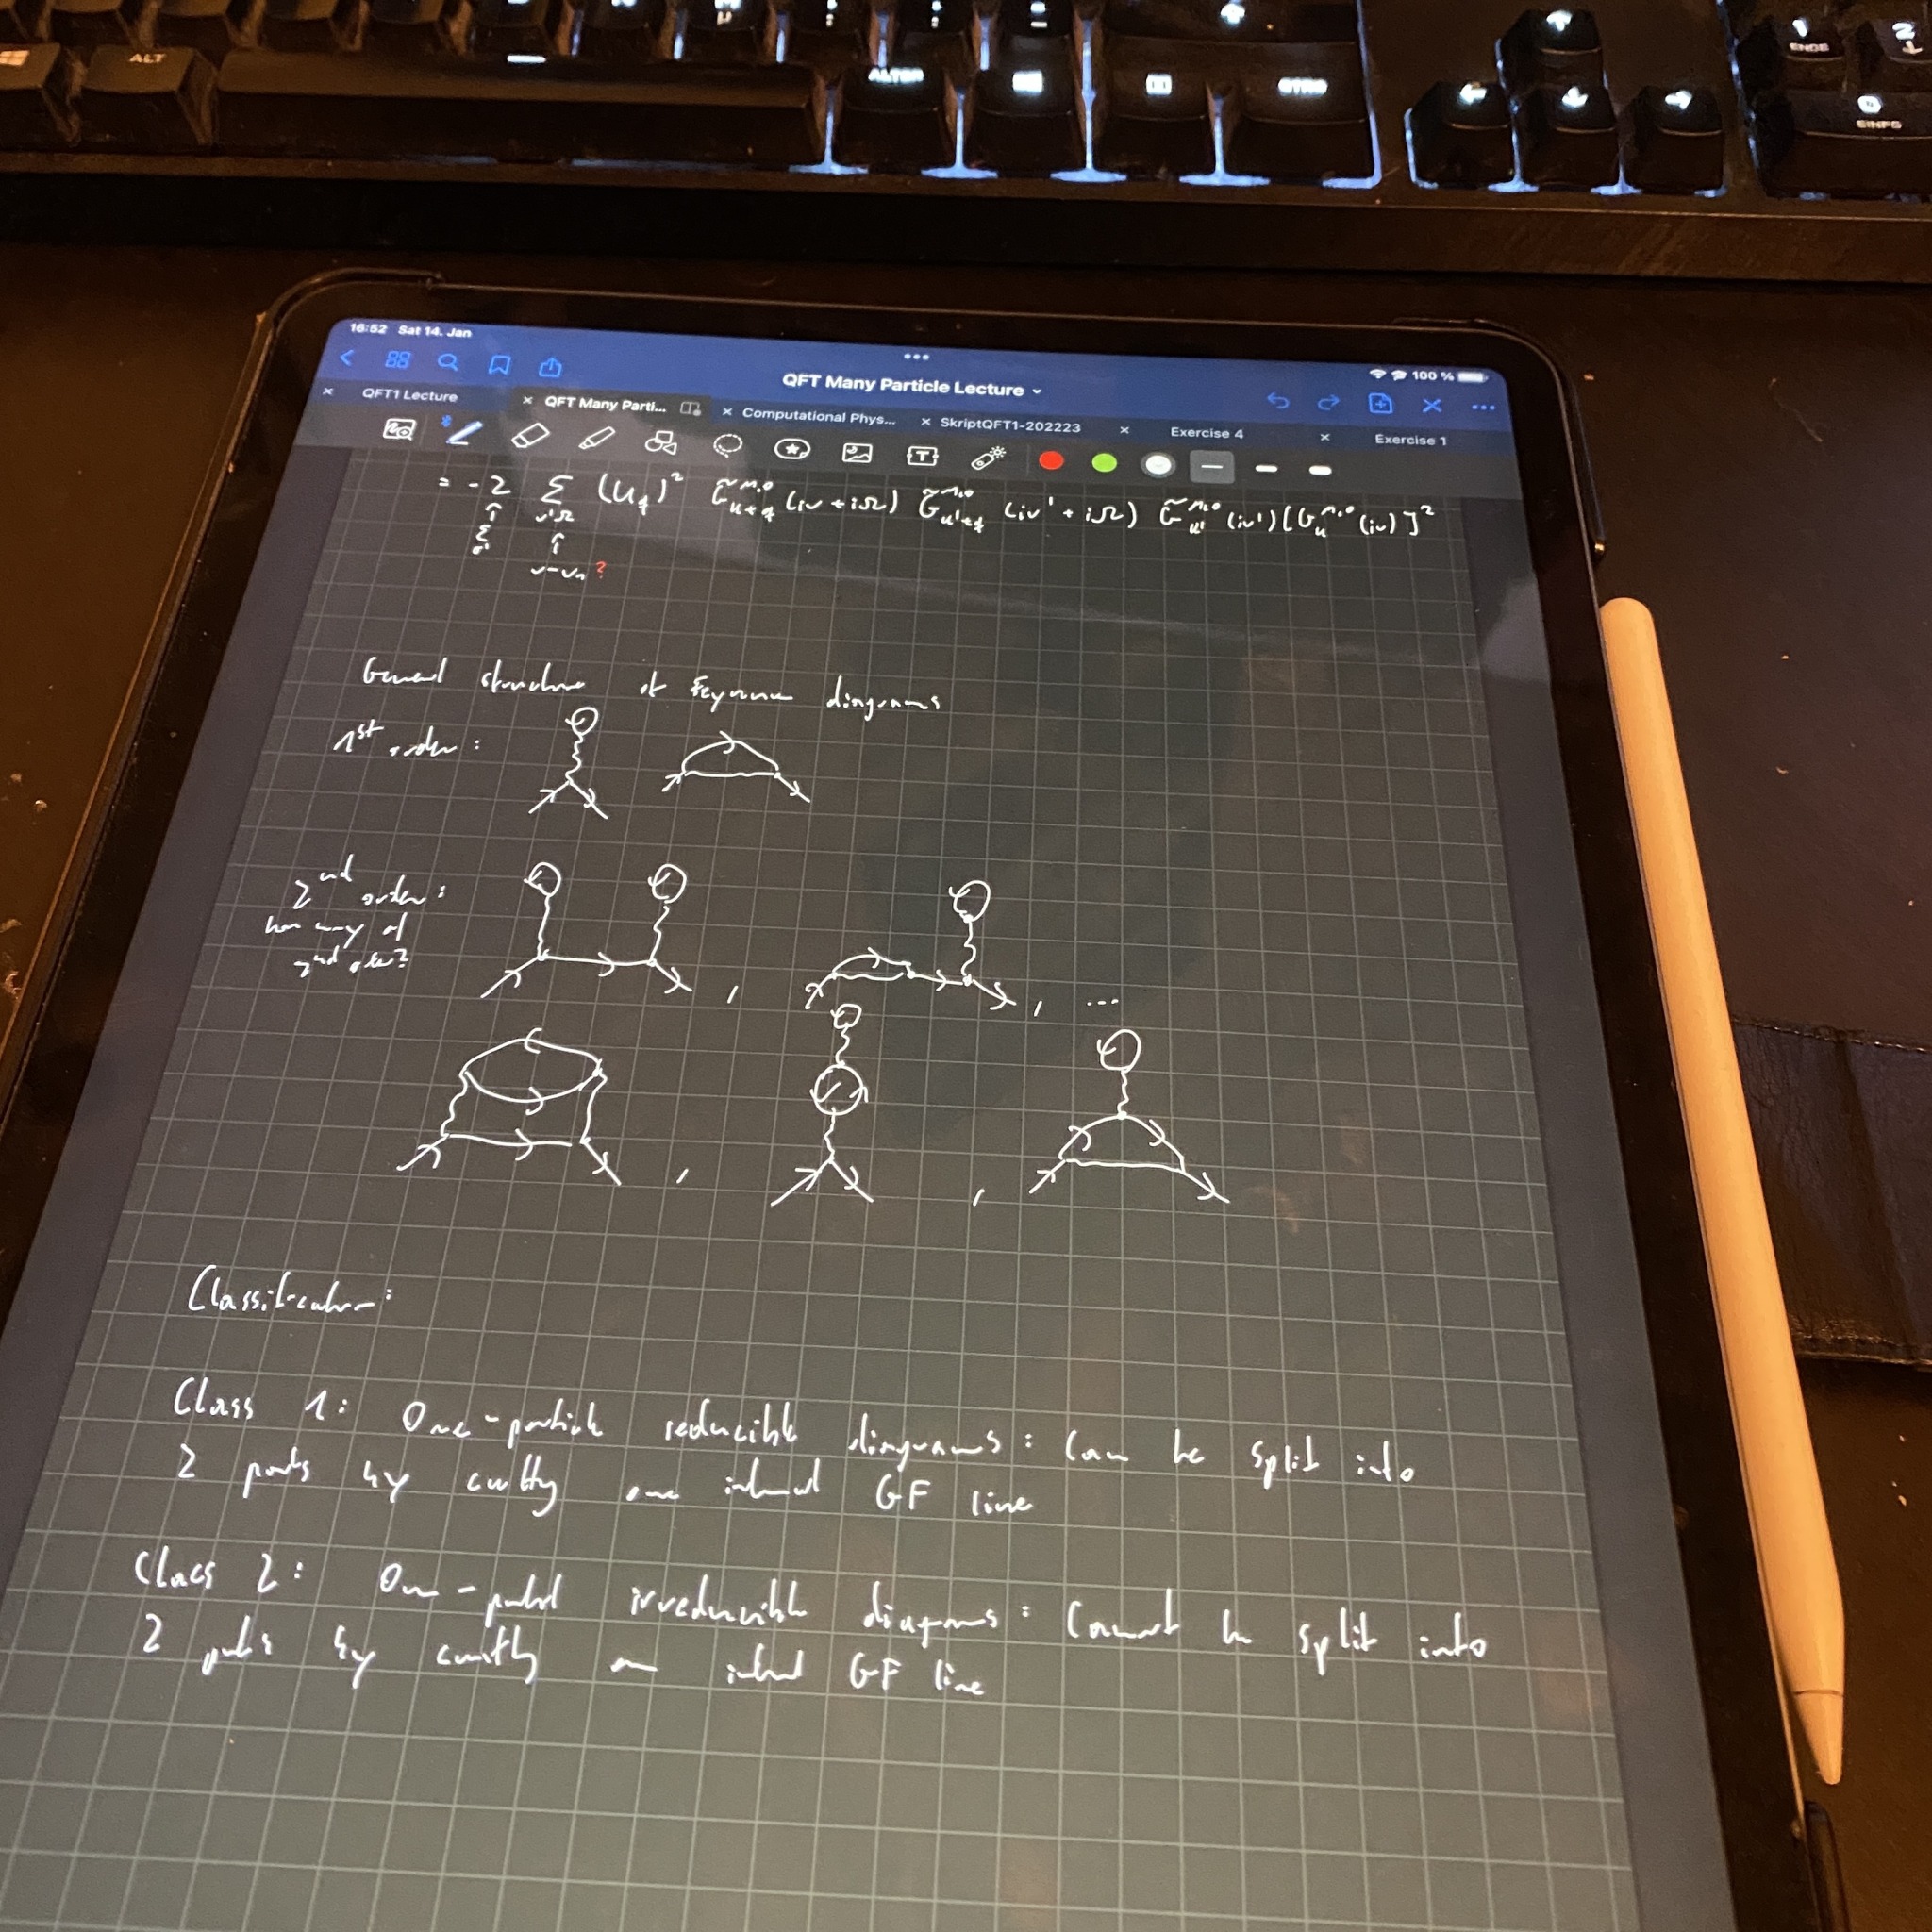 ALT
ALTGR
STRG
1
ENDE
2
0
EINFG
16:52 Sat 14. Jan
100 %
QFT Many Particle Lecture
QFT1 Lecture
QFT Many Parti...
Computational Phys...
SkriptQFT1-202223
Exercise 4
Exercise 1
= -2 Σ (U_q)² G̃ (iν + iΩ) G̃ (iν' + iΩ) G̃ (iν') [G (iν)]²
?
General structure of Feynman diagrams
1st order:
2nd order:
how many of
2nd order?
, , ...
, ,
Classification:
Class 1: One-particle reducible diagrams: Can be split into
2 parts by cutting one internal GF line
Class 2: One-particle irreducible diagrams: Cannot be split into
2 parts by cutting one internal GF line